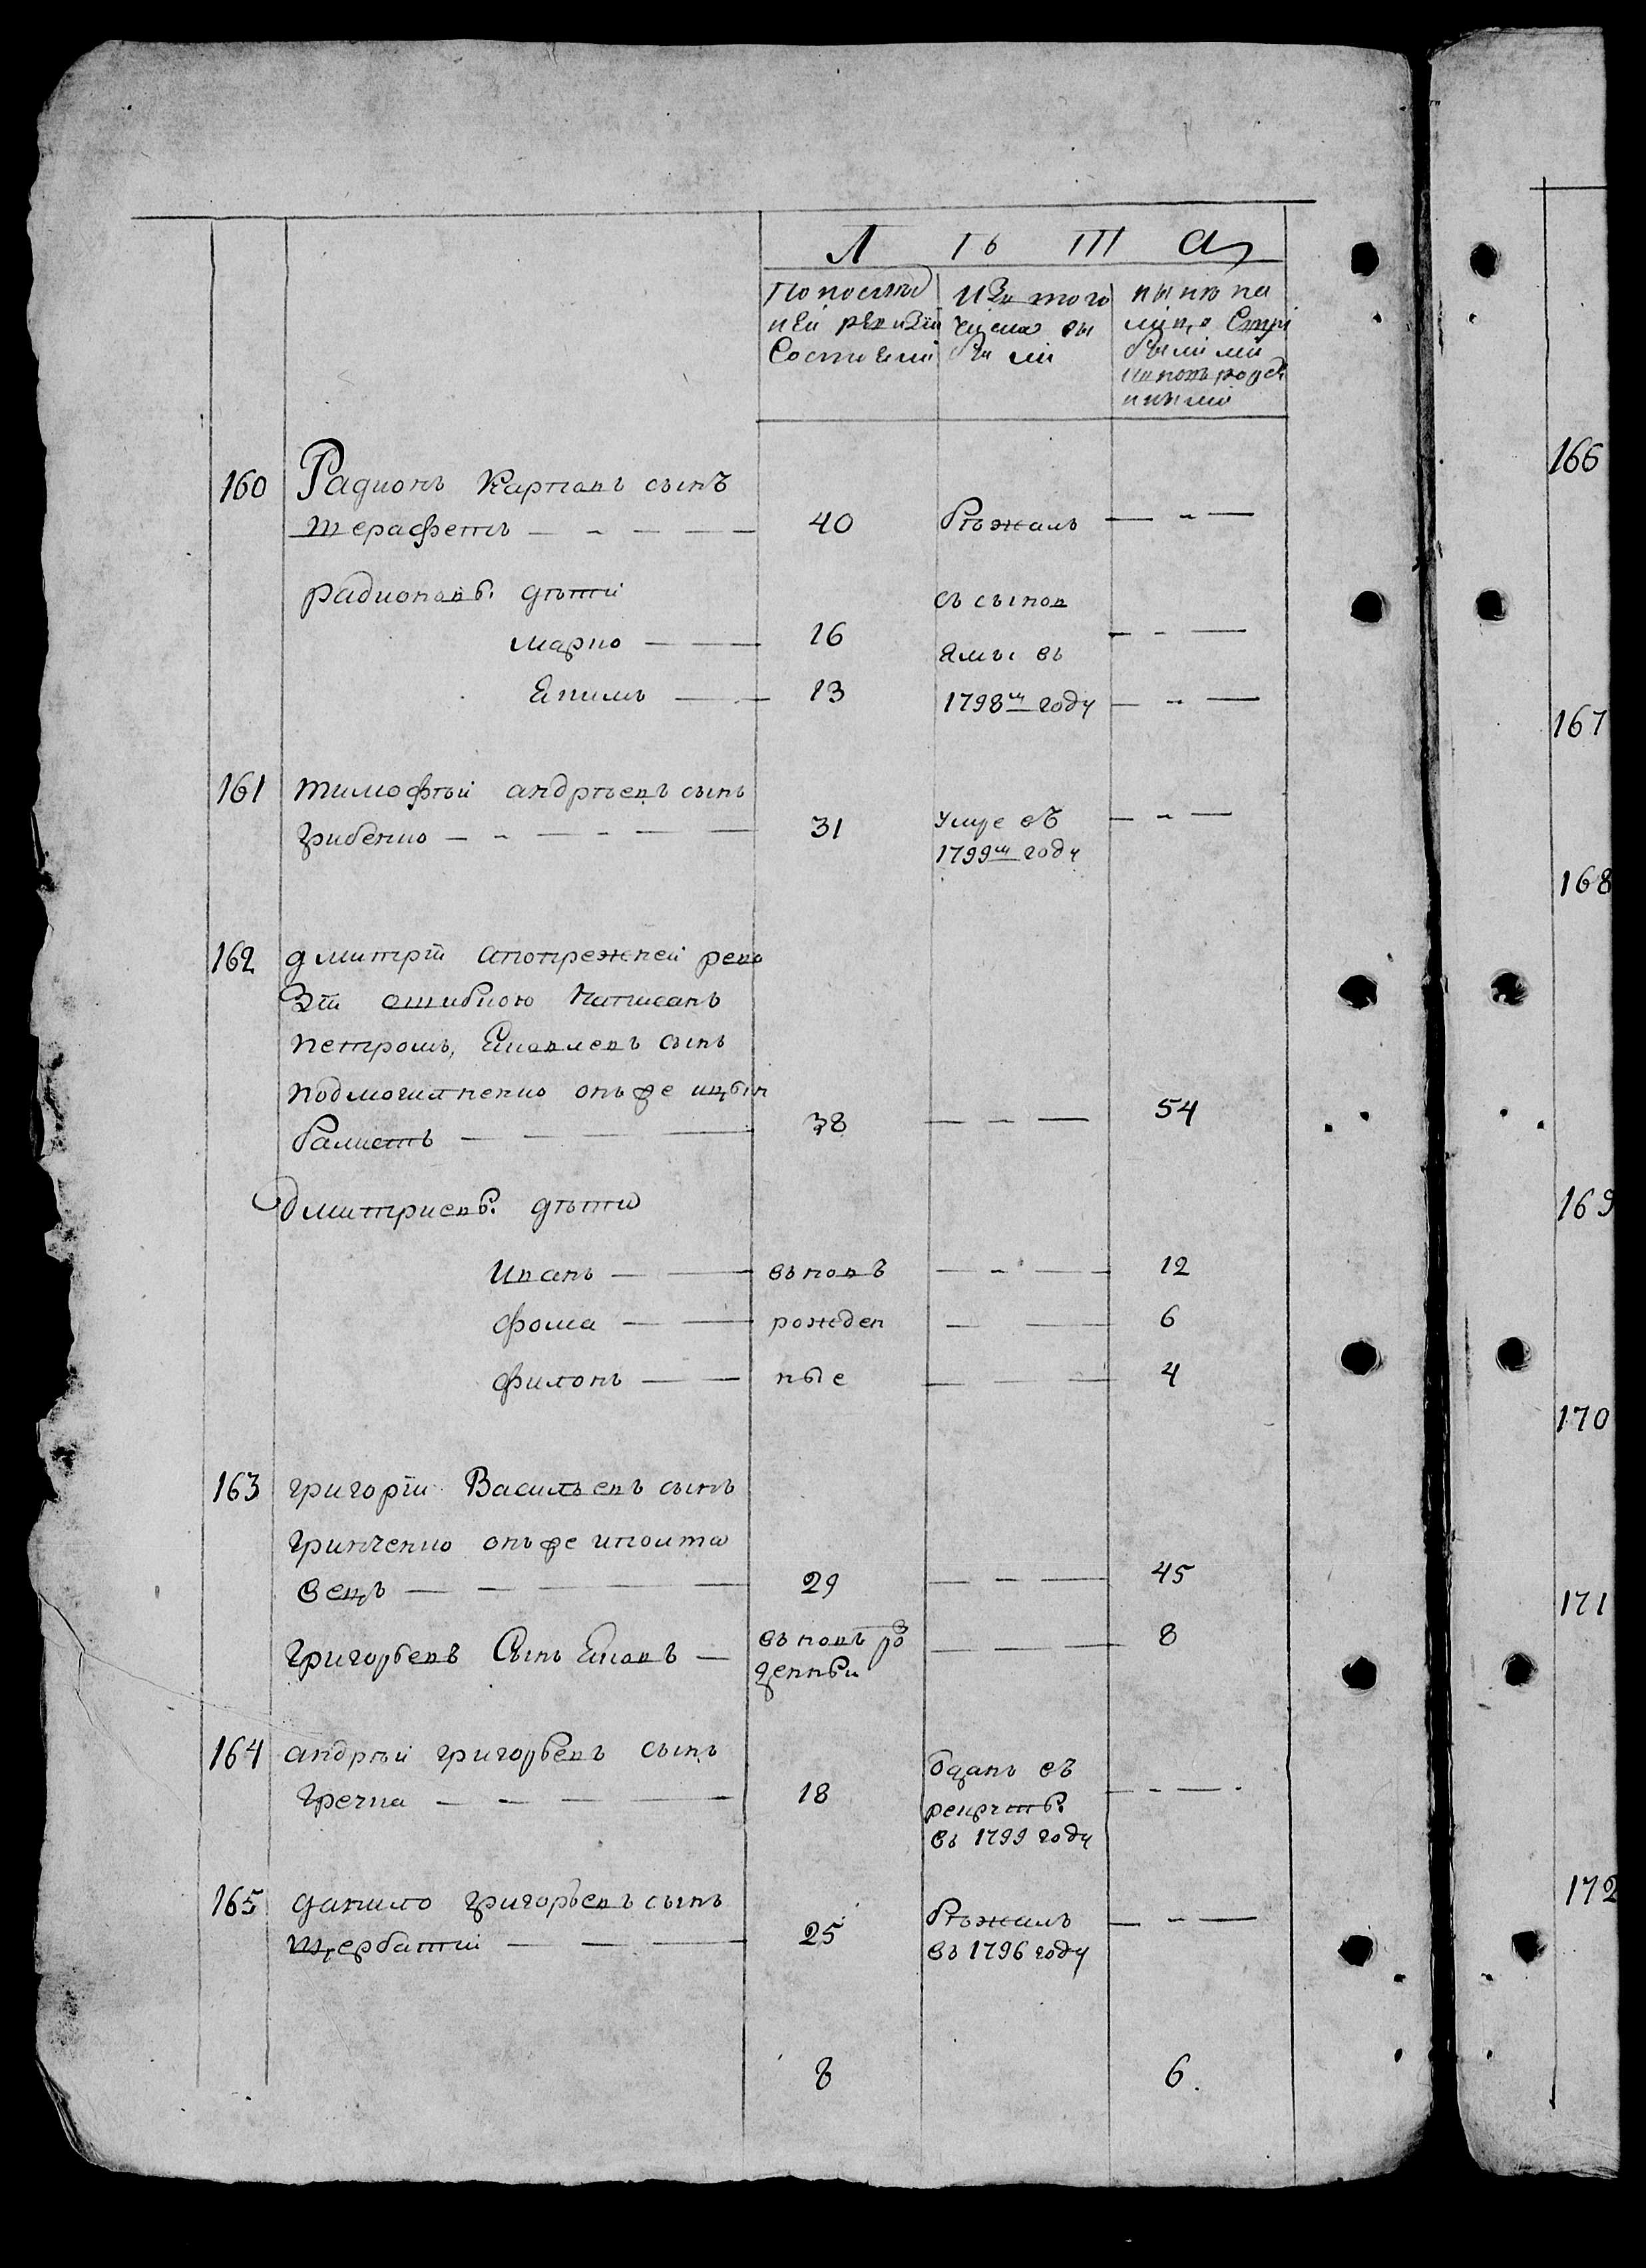 Л ѣ т а
По послѣд
ней ревизіи
Состояли
Изъ того
числа вы
были
нынѣ на
лицо Спри
былыми
и вновь рожде
нными
160 Радионъ Карповъ сынъ
терафетъ — 40 бѣжалъ —
радионовы дѣти съ сынов
марко — 16 —
ями въ
Екимъ — 13 1798м году —
161 тимофѣй андрѣевъ сынъ
грибенко — 31 умре въ —
1799м году
162 дмитрій апопрежней реви
зіи ошибкою написанъ
петромъ, Яковлевъ сынъ
подмогилненко онъ же ицын
балистъ — 38 — 54
дмитриевы дѣти
Иванъ — вновь — 12
фома — рожден — 6
филонъ — ные — 4
163 григорій Васильевъ сынъ
гринченко онъ же иполта
вецъ — 29 — 45
григорьевъ Сынъ Яковъ — вновь ро — 8
жденны
164 андрѣй григорьевъ сынъ
гречка — 18 — 
Отданъ въ
рекруты
въ 1799 году
165 данило григорьевъ сынъ
щербатий — 25 бѣжалъ —
въ 1796 году
8 6.
166
167
168
169
170
171
172